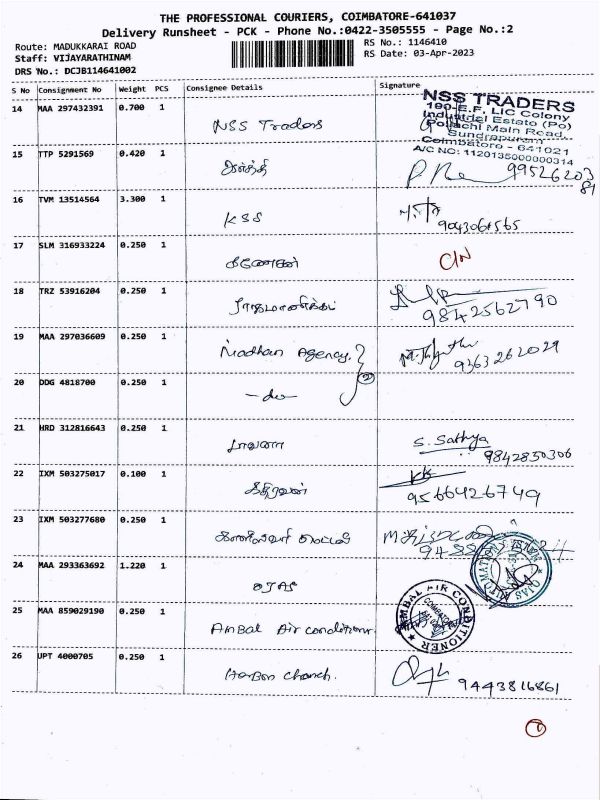 THE PROFESSIONAL COURIERS, COIMBATORE-641037
Delivery Runsheet - PCK - Phone No.:0422-3505555 - Page No.:2
Route: MADUKKARAI ROAD
Staff: VIJAYARATHINAM
DRS No.: DCJB114641002
RS No.: 1146410
RS Date: 03-Apr-2023
S No Consignment No Weight PCS Consignee Details Signature
14 MAA 297432391 0.700 1 NSS Traders
NSS TRADERS
190-E.F. LIC Colony
Industrial Estate (Po)
Pollachi Main Road,
Sundrapuram
Coimbatore - 641021
A/C NO: 1120135000000314
15 TTP 5291569 0.420 1
16 TVM 13514564 3.300 1 KSS
9043061565
17 SLM 316933224 0.250 1 கணேசன் C/N
18 TRZ 53916204 0.250 1 ராஜமாணிக்கம்
9842562790
19 MAA 297036609 0.250 1 Madhan Agency.
9363262029
20 DDG 4818700 0.250 1 -do-
21 HRD 312816643 0.250 1 பாவனா S. Sathya
9842830306
22 IXM 503275017 0.100 1 கதிரவன்
9566426749
23 IXM 503277680 0.250 1
24 MAA 293363692 1.220 1 OJAS
25 MAA 859029190 0.250 1 Ambal Air conditioner
AMBAL AIR CONDITIONER
COIMBATORE
26 UPT 4000705 0.250 1
9443816861